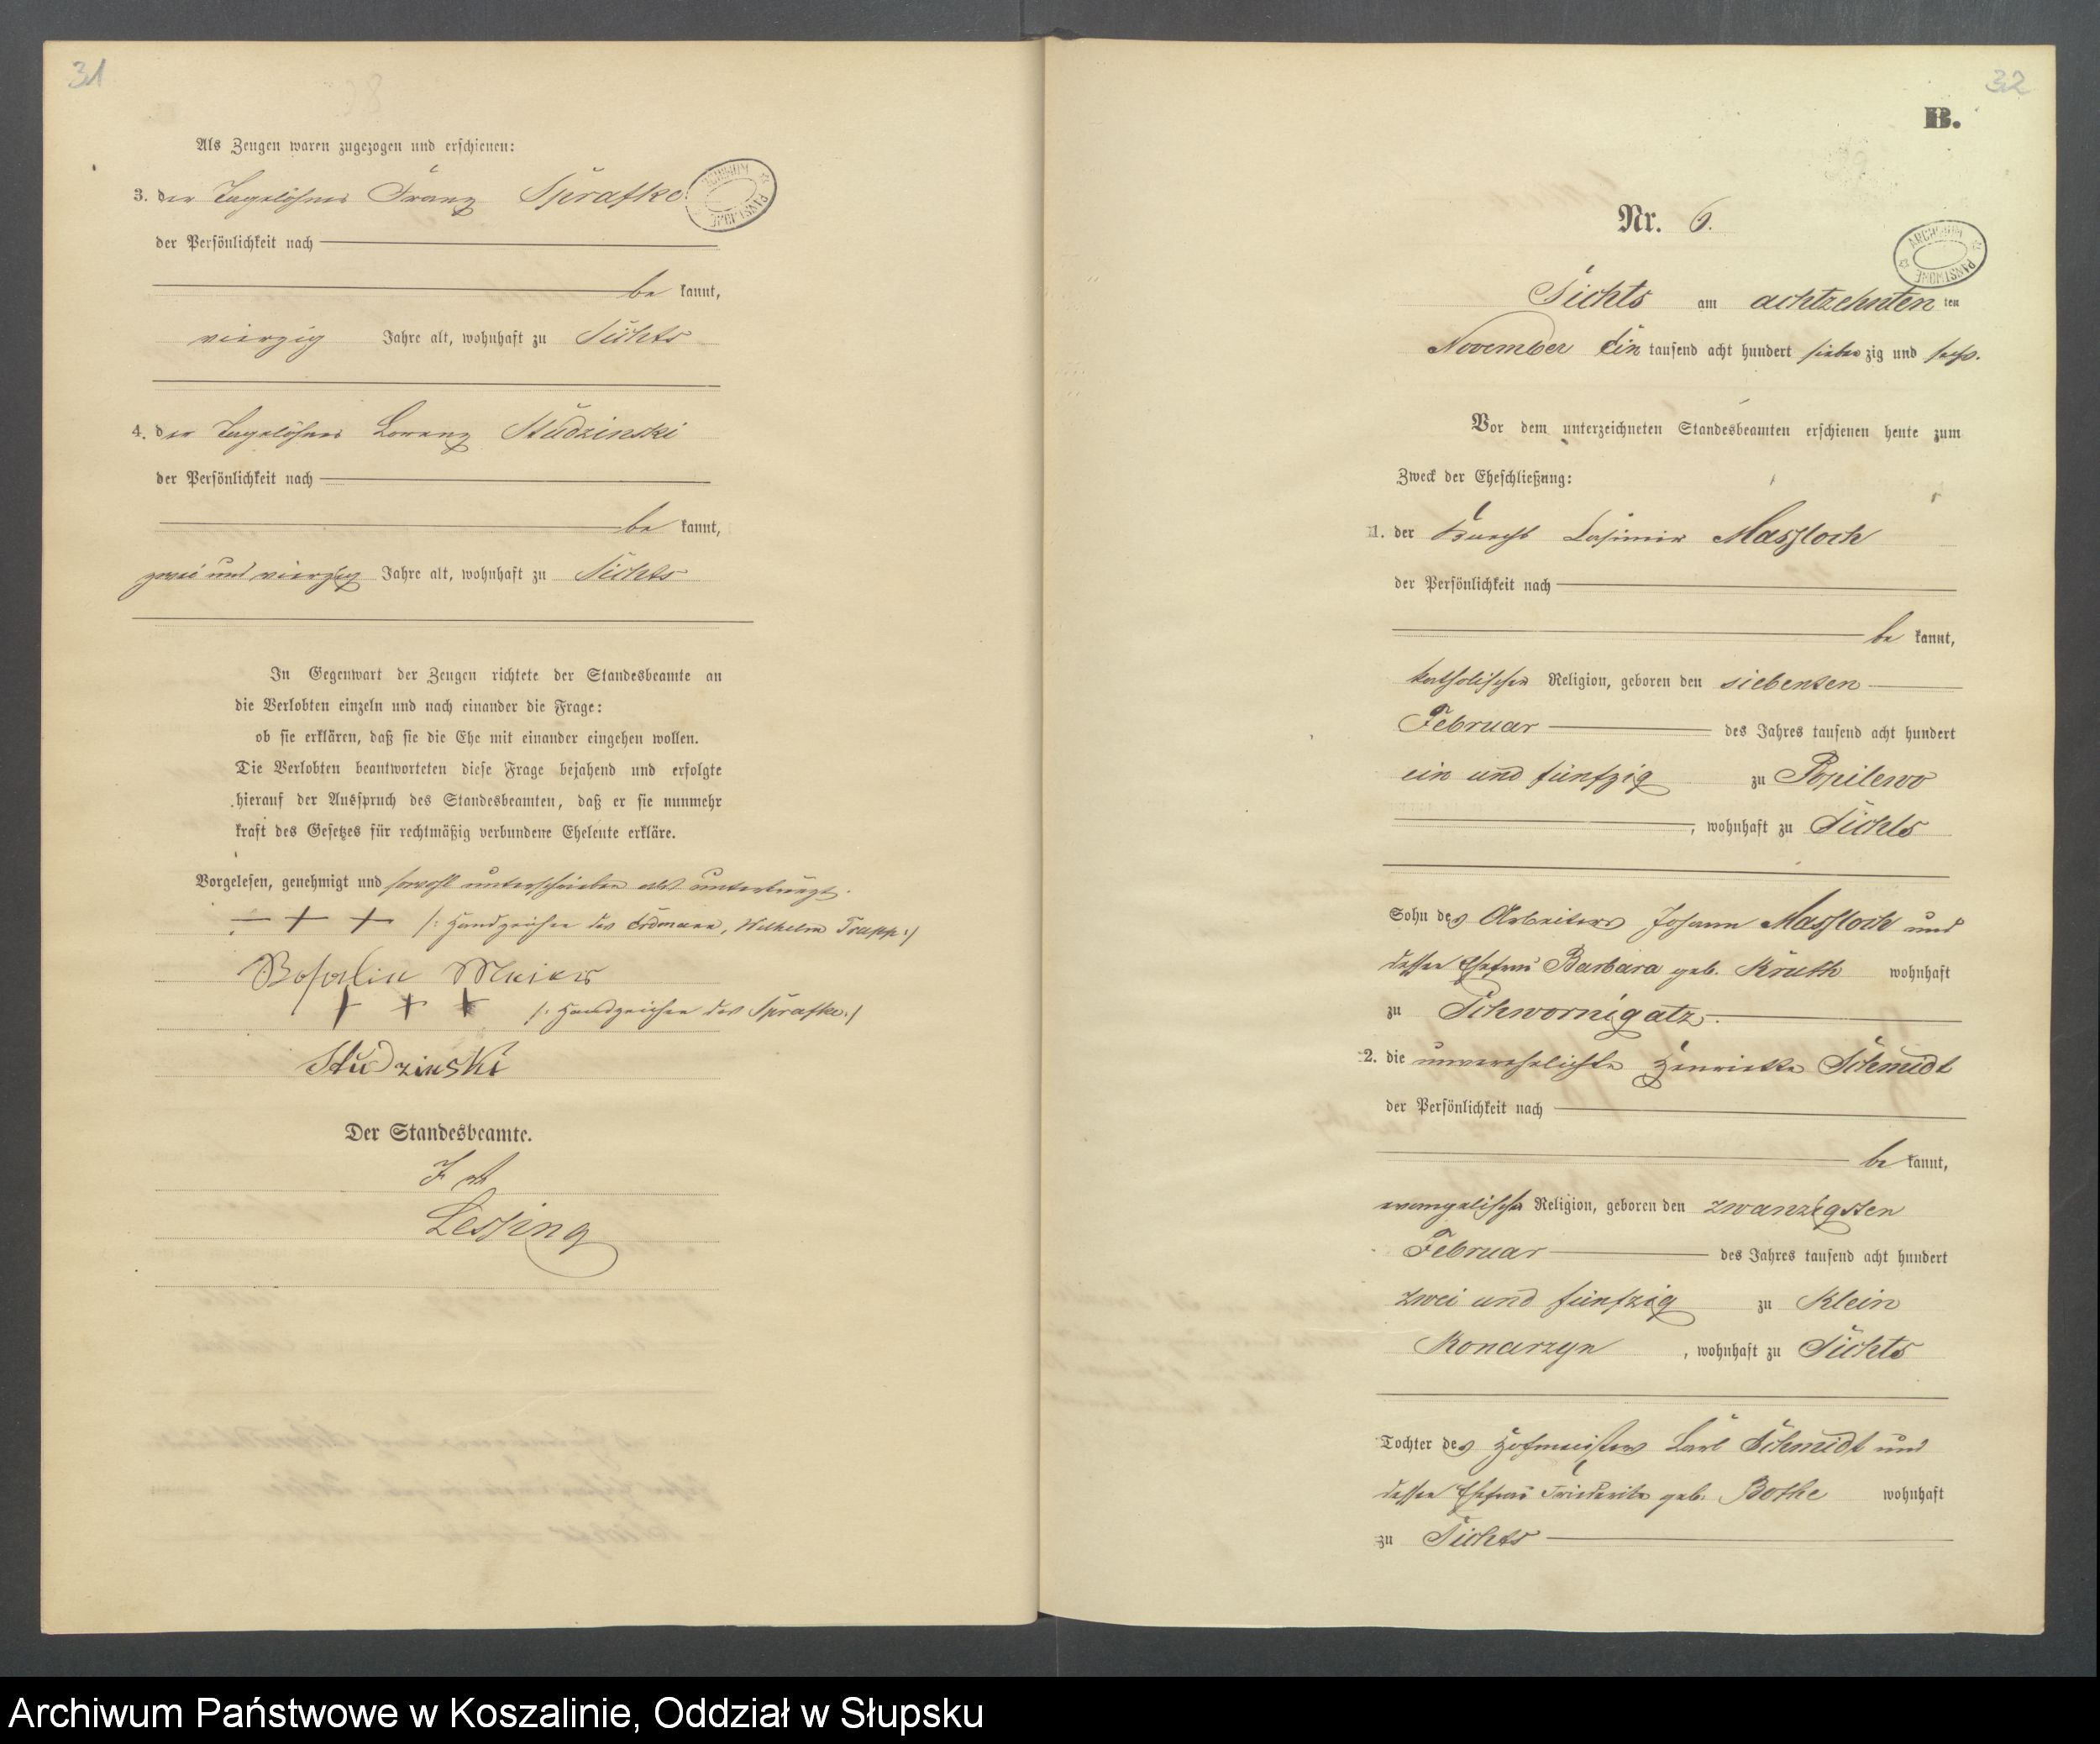 31
Als Zeugen waren zugezogen und erschienen:
3. der Tagelöhner Franz Spratke
der Persönlichkeit nach
be kannt,
vierzig Jahre alt, wohnhaft zu Sichts
4. der Tagelöhner Lorenz Studzinski
der Persönlichkeit nach
be kannt,
zwei und vierzig Jahre alt, wohnhaft zu Sichts
In Gegenwart der Zeugen richtete der Standesbeamte an
die Verlobten einzeln und nach einander die Frage:
ob sie erklären, daß sie die Ehe mit einander eingehen wollen.
Die Verlobten beantworteten diese Frage bejahend und erfolgte
hierauf der Ausspruch des Standesbeamten, daß er sie nunmehr
kraft des Gesetzes für rechtmäßig verbundene Eheleute erkläre.
Vorgelesen, genehmigt und sowohl unterschrieben als unterkreuzt.
+ + + /: Handzeichen des Erdmann, Wilhelm Trapp :/
Meier
+ + + /: Handzeichen des Spratke :/
Studzinski
Der Standesbeamte.
Lessing
32
B.
Nr. 6.
ARCHIWUM PAŃSTWOWE
Sichts am achtzehnten ten
November Ein tausend acht hundert sieben zig und sechs.
Vor dem unterzeichneten Standesbeamten erschienen heute zum
Zweck der Eheschließung:
1. der Knecht Casimir Massloch
der Persönlichkeit nach
be kannt,
katholischer Religion, geboren den siebenten
Februar des Jahres tausend acht hundert
ein und fünfzig zu
, wohnhaft zu Sichts
Sohn des Arbeiters Johann Massloch und
dessen Ehefrau Barbara geb. Kruth wohnhaft
zu Schwornigatz.
2. die unverehelichte Henriette Schmidt
der Persönlichkeit nach
be kannt,
evangelischer Religion, geboren den zwanzigsten
Februar des Jahres tausend acht hundert
zwei und fünfzig zu Klein
Konarzyn , wohnhaft zu Sichts
Tochter des Hofmeisters Carl Schmidt und
dessen Ehefrau Friederike geb. Bothe wohnhaft
zu Sichts
Archiwum Państwowe w Koszalinie, Oddział w Słupsku